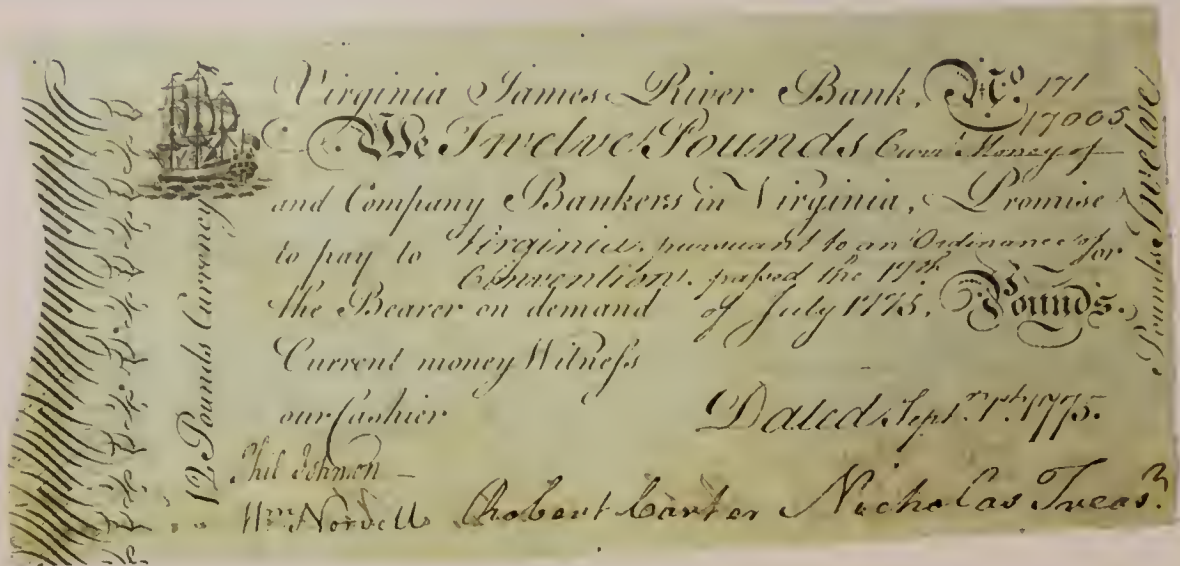 Virginia James River Bank, No. 171
17005
We Twelve Pounds Curr.t Money of
and Company Bankers in Virginia, Promise
to pay to Virginia, pursuant to an Ordinance of for
Convention, passed the 17th
the Bearer on demand of July 1775. Pounds.
Current money Witness
our Cashier
Dated Sept.r 1st. 1775.
Phil Johnson
Wm Norvell Robert Carter Nicholas Treas.r
12 Pounds Currency
Pounds Twelve